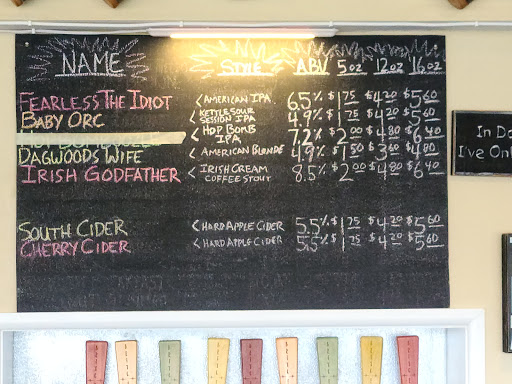 NAME STYLE ABV 5oz 12oz 16oz
FEARLESS THE IDIOT < AMERICAN IPA 6.5% $1 75 $4 20 $5 60
BABY ORC < KETTLE SOUR SESSION IPA 4.9% $1 75 $4 20 $5 60
HOP BOMB IPA 7.2% $2 00 $4 80 $6 40
DAGWOODS WIFE < AMERICAN BLONDE 4.9% $1 50 $3 60 $4 80
IRISH GODFATHER < IRISH CREAM COFFEE STOUT 8.5% $2 00 $4 80 $6 40
SOUTH CIDER < HARD APPLE CIDER 5.5% $1 75 $4 20 $5 60
CHERRY CIDER < HARD APPLE CIDER 5.5% $1 75 $4 20 $5 60
In Do
I've Onl